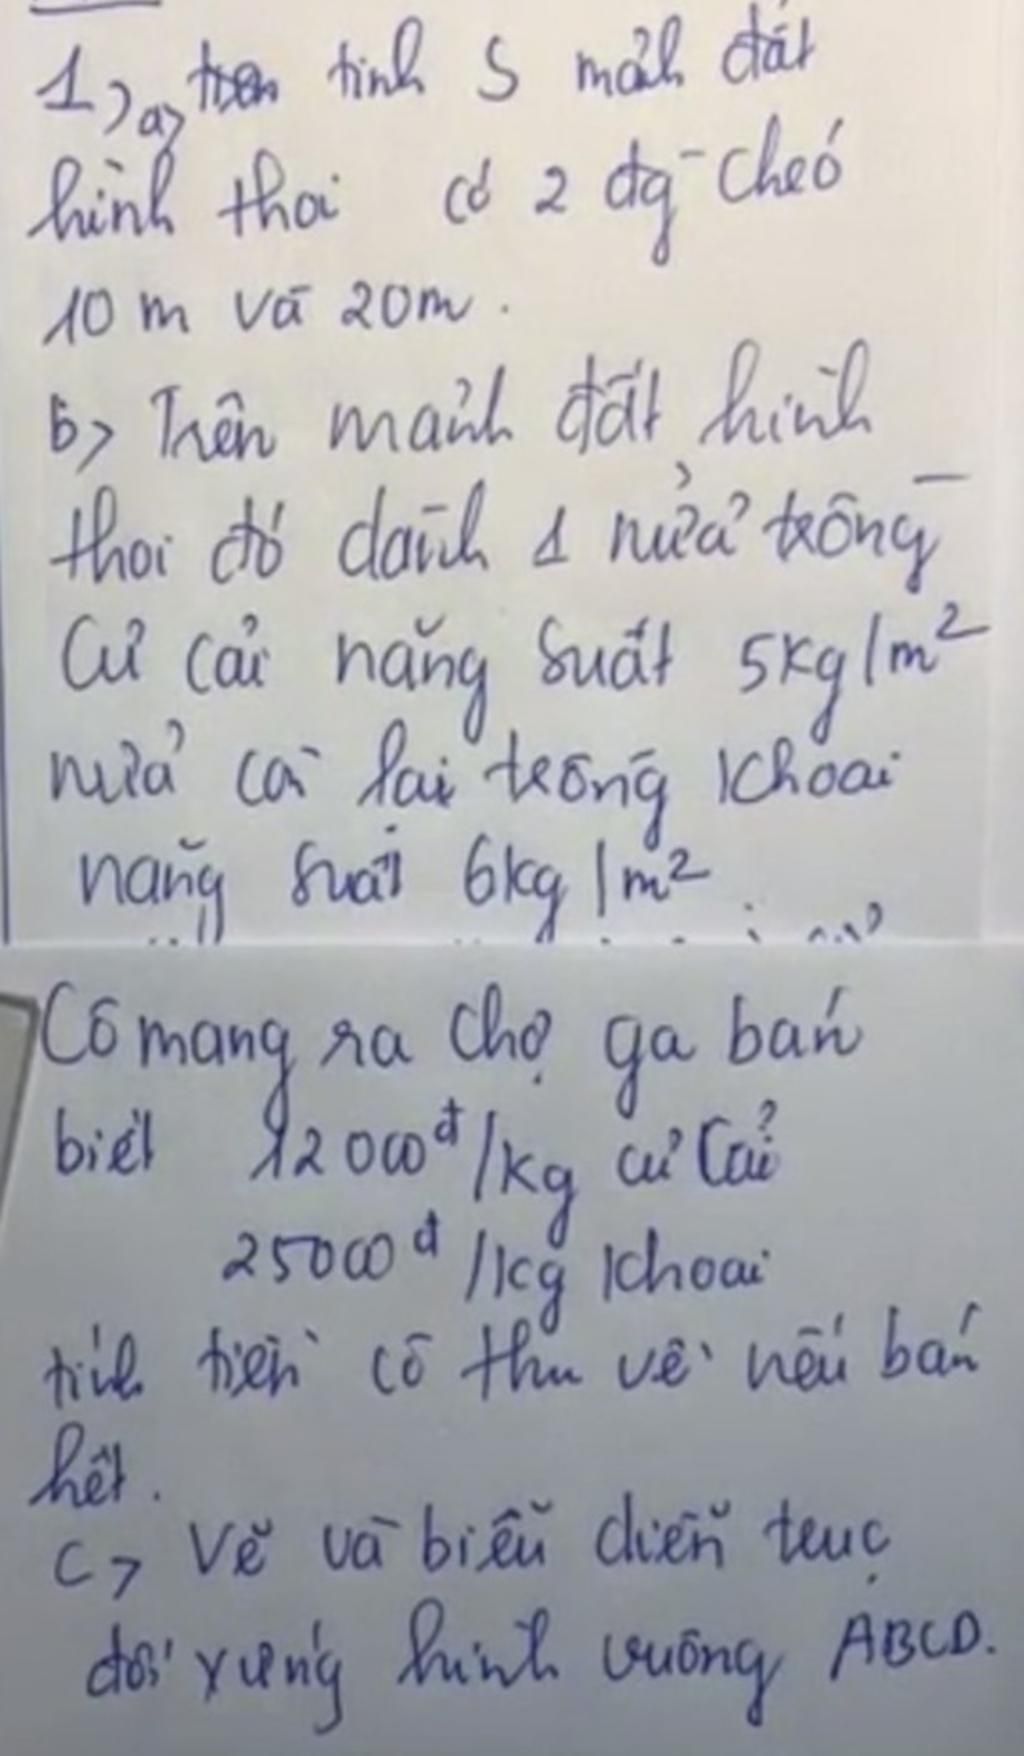 1, a, tính S mảh đất
hình thoi có 2 đg- chéo
10 m và 20m.
b, Trên mảnh đất hình
thoi đó dành 1 nửa trồng
Củ cải năng suất 5kg/m²
nửa còn lại trồng khoai
năng suất 6kg/m²
Cô mang ra chợ ga bán
biết 12000đ/kg củ cải
25000đ/kg khoai
tính tiền cô thu về nếu bán
hết.
c, Vẽ và biểu diễn trục
đối xứng hình vuông ABCD.